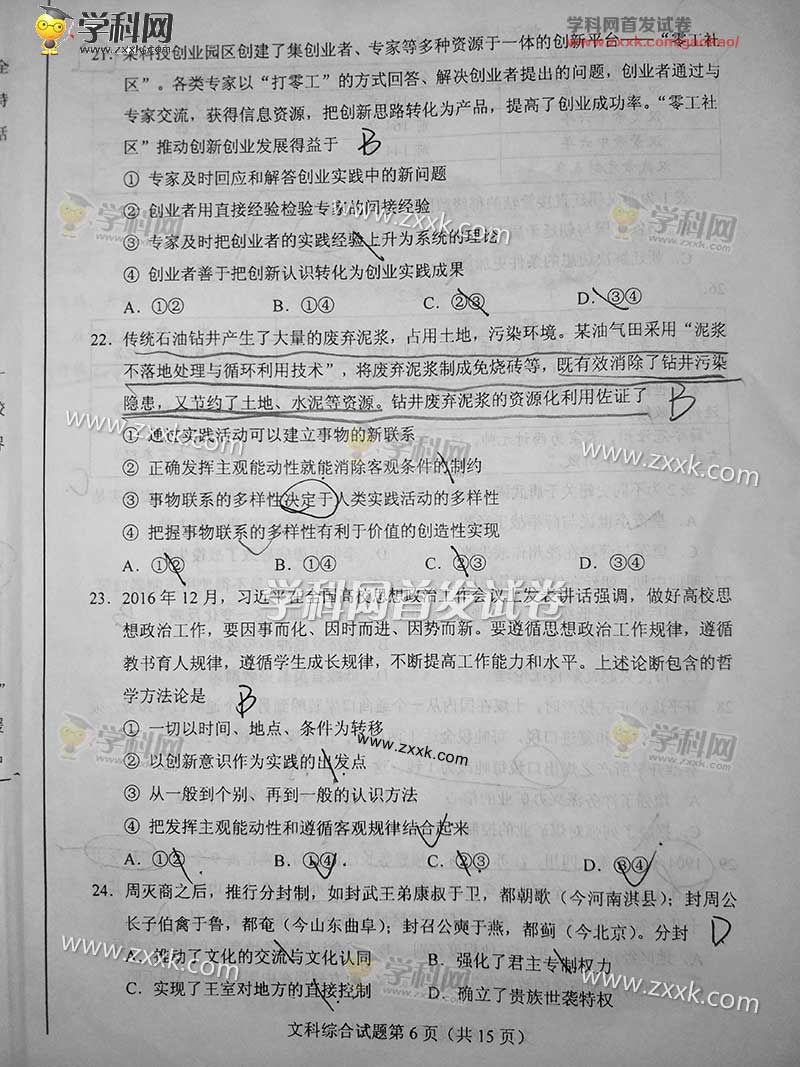 学科网
WWW.ZXXK.COM
学科网首发试卷
21. 某科技创业园区创建了集创业者、专家等多种资源于一体的创新平台——“零工社
区”。各类专家以“打零工”的方式回答、解决创业者提出的问题，创业者通过与
专家交流，获得信息资源，把创新思路转化为产品，提高了创业成功率。“零工社
区”推动创新创业发展得益于 B
① 专家及时回应和解答创业实践中的新问题
② 创业者用直接经验检验专家的间接经验
③ 专家及时把创业者的实践经验上升为系统的理论
④ 创业者善于把创新认识转化为创业实践成果
A. ①② B. ①④ C. ②③ D. ③④
22. 传统石油钻井产生了大量的废弃泥浆，占用土地，污染环境。某油气田采用“泥浆
不落地处理与循环利用技术”，将废弃泥浆制成免烧砖等，既有效消除了钻井污染
隐患，又节约了土地、水泥等资源。钻井废弃泥浆的资源化利用佐证了 B
① 通过实践活动可以建立事物的新联系
② 正确发挥主观能动性就能消除客观条件的制约
③ 事物联系的多样性决定于人类实践活动的多样性
④ 把握事物联系的多样性有利于价值的创造性实现
A. ①② B. ①④ C. ②③ D. ③④
23. 2016年12月，习近平在全国高校思想政治工作会议上发表讲话强调，做好高校思
想政治工作，要因事而化、因时而进、因势而新。要遵循思想政治工作规律，遵循
教书育人规律，遵循学生成长规律，不断提高工作能力和水平。上述论断包含的哲
学方法论是 B
① 一切以时间、地点、条件为转移
② 以创新意识作为实践的出发点
③ 从一般到个别、再到一般的认识方法
④ 把发挥主观能动性和遵循客观规律结合起来
A. ①② B. ①④ C. ②③ D. ③④
24. 周灭商之后，推行分封制，如封武王弟康叔于卫，都朝歌（今河南淇县）；封周公
长子伯禽于鲁，都奄（今山东曲阜）；封召公奭于燕，都蓟（今北京）。分封 D
A. 推动了文化的交流与文化认同 B. 强化了君主专制权力
C. 实现了王室对地方的直接控制 D. 确立了贵族世袭特权
文科综合试题第 6 页（共 15 页）